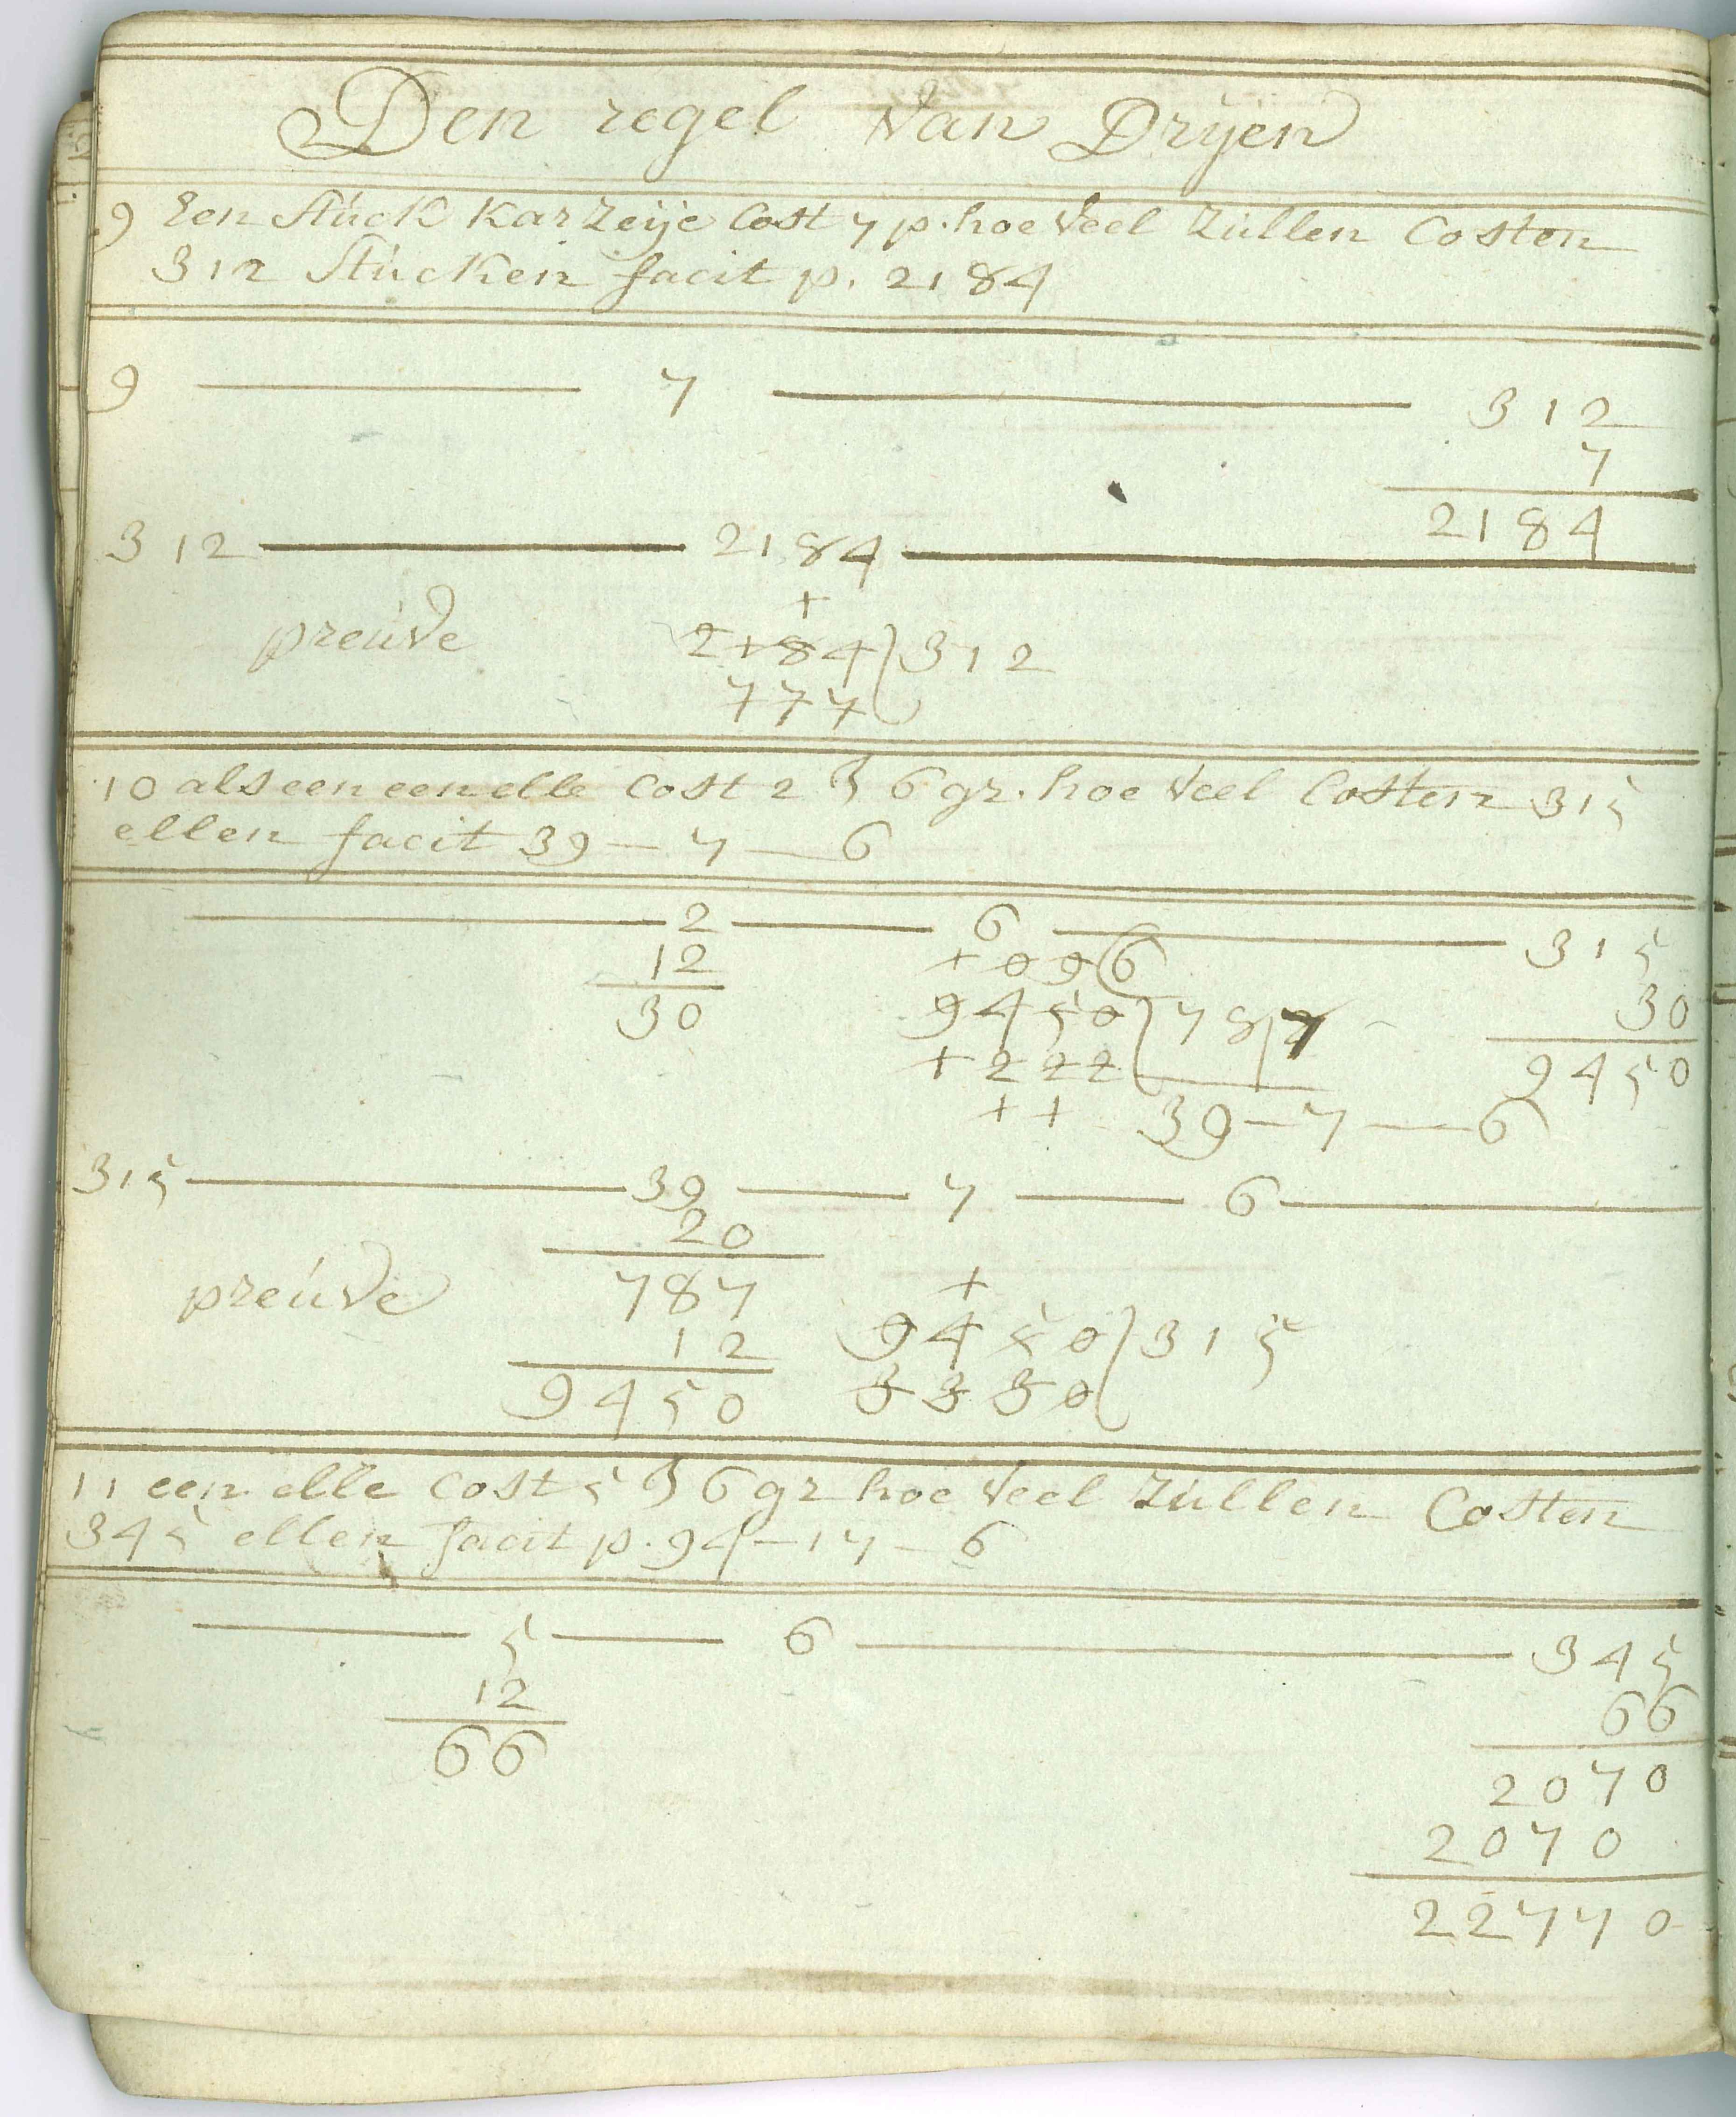 Den regel van Dryen
9 Een stuck karzeije Cost 7 p. hoe veel zullen Costen
312 stucken facit p. 2184
9 — 7 — 312
7
2184
312 — 2184 —
+
preuve 2184) 312
777
10 als een een elle Cost 2 ß 6 gr. hoe veel Costen 315
ellen facit 39 — 7 — 6
— 2 — 6 — 315
12 + 0 9 (6
30 9450) 78|7 30
+ 222 9450
+ + 39 — 7 — 6
315 — 39 — 7 — 6 —
20
preuve 787 +
12 9450) 315
9450 3330
11 een elle Cost 5 ß 6 gr hoe veel zullen Costen
345 ellen facit p. 94 — 17 — 6
— 5 — 6 — 345
12 66
66 2070
2070
22770